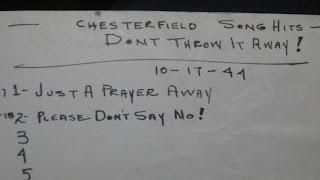 — CHESTERFIELD SONG HITS —
DONT THROW IT AWAY!
10-17-44
1- JUST A PRAYER AWAY
2- PLEASE DON'T SAY NO!
3
4
5